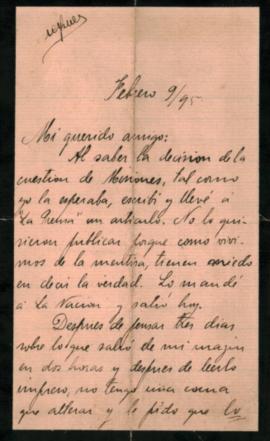 Febrero 9/95
Mi querido amigo:
Al saber la decision de la
cuestion de Misiones, tal como
yo la esperaba, escribí y llevé á
"La Prensa" un artículo. No lo qui-
sieron publicar porque como vivi-
mos de la mentira, tienen miedo
en decir la verdad. Lo mandé
á La Nacion y salió hoy.
Despues de pensar tres dias
sobre lo que salió de mi magin
en dos horas y despues de leerlo
impreso, no tengo una coma
que alterar y le pido que lo